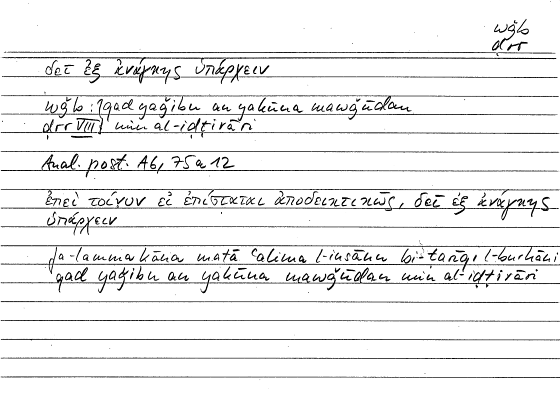 wǧb
ḍrr
δεῖ ἐξ ἀνάγκης ὑπάρχειν
wǧb : qad yaǧibu an yakūna mawǧūdan
ḍrr VIII min al-iḍṭirāri
Anal. post. A6, 75a12
ἐπεὶ τοίνυν εἰ ἐπίσταται ἀποδεικτικῶς, δεῖ ἐξ ἀνάγκης
ὑπάρχειν
fa-lamma kāna matā ʿalima l-insānu bi-ṭarīqi l-burhāni
qad yaǧibu an yakūna mawǧūdan min al-iḍṭirāri